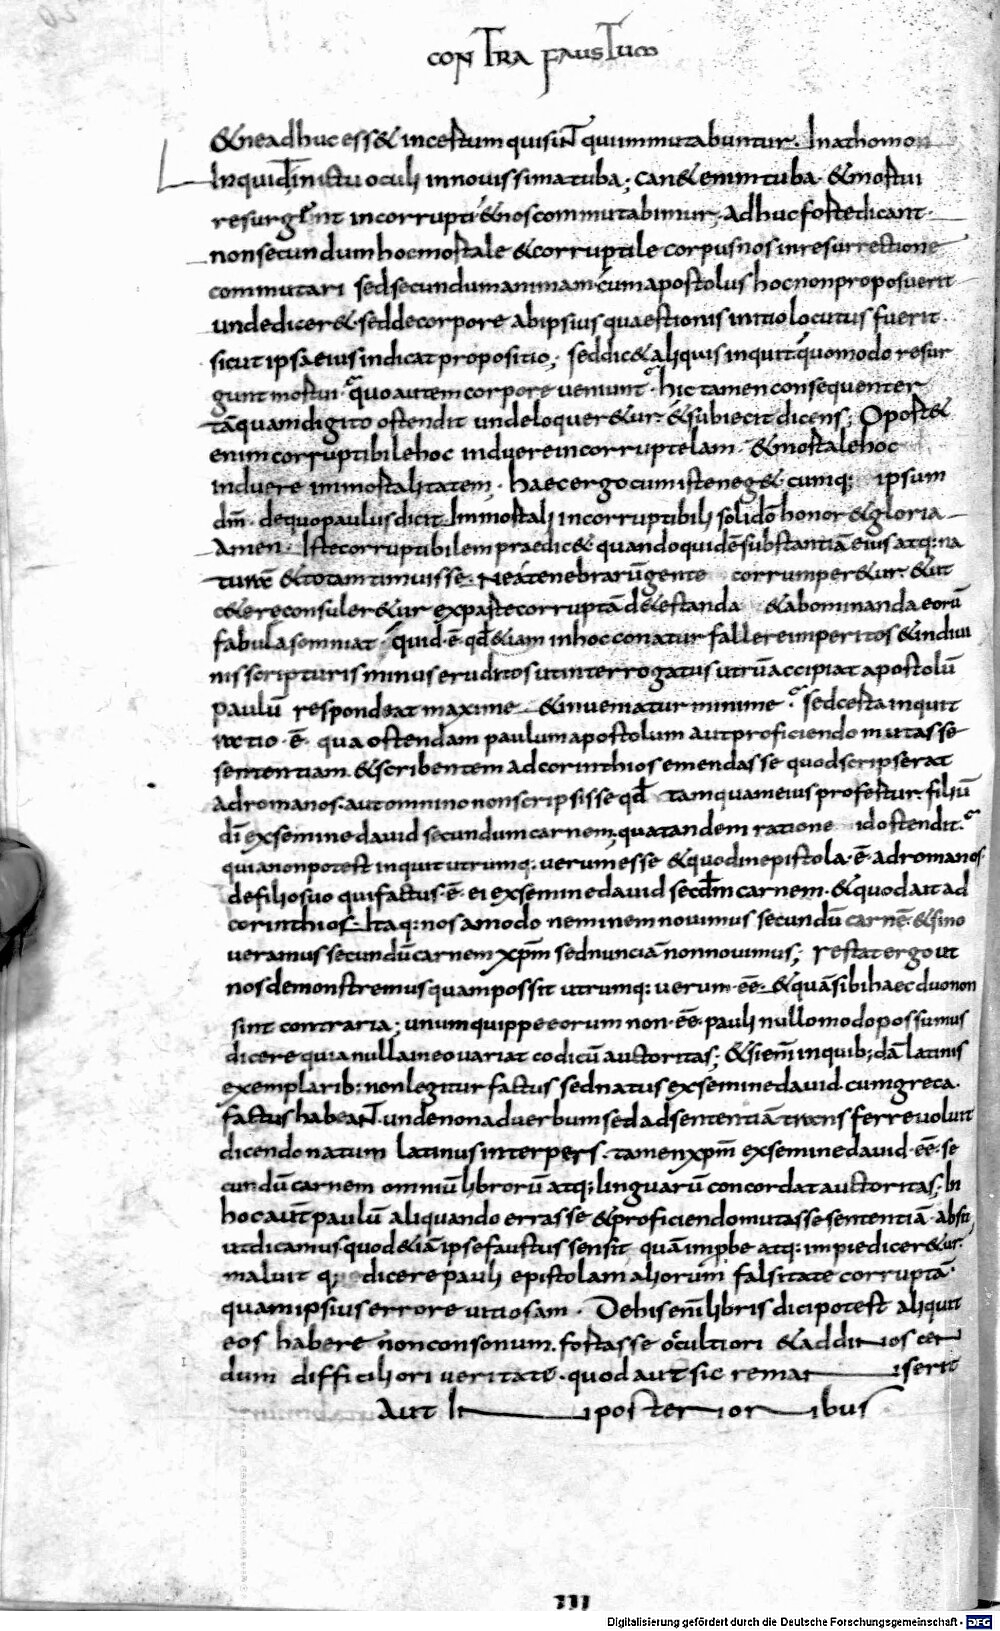 CONTRA FAUSTUM
&neadhuc ess& incertum qui sint qui inmutabuntur. Inathomo
Inquid inictu oculi innouissima tuba; can& enim tuba. & mortui
resurgent incorrupti & nos commutabimur; Adhuc forte dicant.
non secundum hoc mortale & corruptile corpus nos inresurrectione
commutari sed secundum animam. cum apostolus hoc non proposuerit
unde dicer&. sed de corpore ab ipsius quaestionis initio locutus fuerit.
sicut ipsa eius indicat propositio; sed dic& aliquis inquit quomodo resur
gunt mortui. quo autem corpore ueniunt. hic tamen consequenter
tāquam digito ostendit unde loquer&ur. & subiecit dicens; Oport&
enim corruptibile hoc induere incorruptelam. & mortale hoc
induere inmortalitatem. haec ergo cum iste neg& cumq; ipsum
dm̄. de quo paulus dicit Inmortali incorruptibili soli dō honor & gloria
Amen. Iste corruptibilem praedic& quandoquidē substantiā eius atq: na
turā & totam timuisse. Ne a tenebrarū gente corrumper&ur. & ut
c&ere consuler&ur ex parte corruptā de&estanda & abominanda eorū
fabula somniat. quid. ē. qd̄ &iam in hoc conatur fallere imperitos & indiui
nis scripturis minus eruditos ut interrogatus utrū accipiat apostolū
paulū respondeat maxime & inueniatur minime. sed certa inquit
ratio. ē. qua ostendam paulum apostolum aut proficiendo mutasse
sententiam. & scribentem ad corinthios emendasse quod scripserat
ad romanos. aut omnino non scripsisse qd̄ tamquam eius profertur. filiū
dī ex semine dauid secundum carnem; qua tandem ratione id ostendit.
quia non potest inquit utrumq: uerum esse & quod in epistola. ē. ad romanos
de filio suo qui factus. ē. ei ex semine dauid secdm̄ carnem. & quod ait ad
corinthios. Itaq: nos amodo neminem nouimus secundū carnē. & si no
ueramus secundū carnem xp̄m sed nunc iā non nouimus; restat ergo ut
nos demonstremus quam possit utrumq: uerum. ēē. & quā sibi haec duo non
sint contraria; unum quippe eorum non. ēē. pauli nullo modo possumus
dicere quia nulla in eo uariat codicū auctoritas; & si enī inquib; dā latinis
exemplarib: non legitur factus sed natus ex semine dauid. cum greca.
factus habeant. unde non ad uerbum sed ad sententiā trans ferre uoluit
dicendo natum latinus interpers. tamen xp̄m ex semine dauid. ēē. se
cundū carnem omniū librorū atq; linguarū concordat auctoritas; In
hoc aut̄ paulū aliquando errasse & proficiendo mutasse sententiā. absit
ut dicamus. quod &iā ipse faustus sensit quā improbe atq: impie dicer&ur.
maluit q; dicere pauli epistolam aliorum falsitate corruptā.
quam ipsius errore uitiosam. De his enī libris dici potest aliquit
eos habere non consonum. fortasse occultiori & addit ios cer
dum difficiliori ueritate. quod aut sic remaniserit
Aut In posterioribus